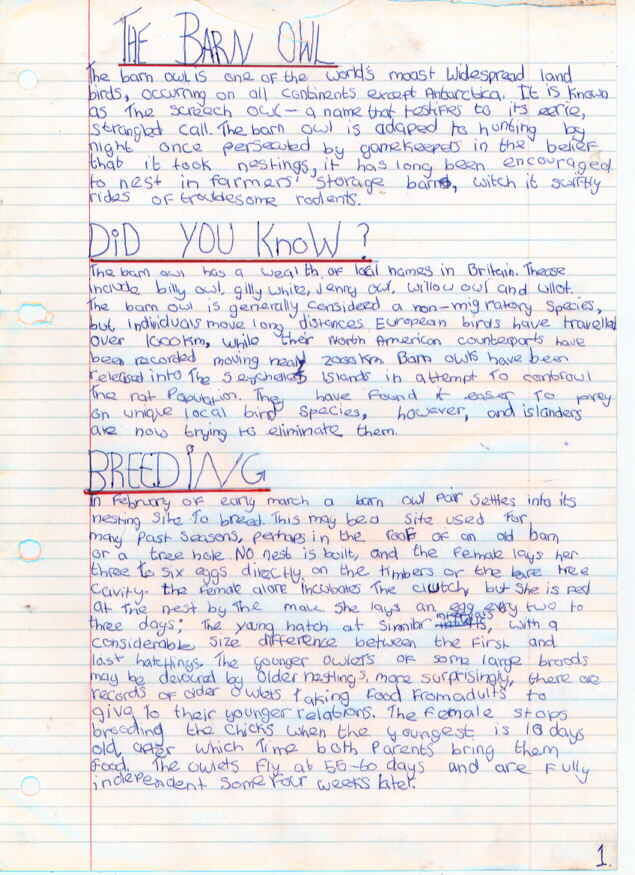 THE BARN OWL
The barn owl is one of the world's moast widespread land
birds, occurring on all continents except Antarctica. It is known
as The screech owl – a name that testifies to its eerie,
strangled call. The barn owl is adaped to hunting by
night once persecuted by gamekeepers in the belief
that it took nestings, it has long been encouraged
to nest in farmers' storage barns, witch it swiftly
rides of troublesome rodents.
DiD YOU KnoW ?
The barn owl has a wealth of local names in Britain. Thease
include billy owl, gilly white, Jenny owl, willow owl and ullot.
The barn owl is generally considered a non-migratory species,
but individuals move long distances. European birds have travelled
over 1000km, while their North American counterparts have
been recorded moving nearly 2000km. Barn owls have been
released into The Seychelles islands in attempt to
The rat Population. They have found it easier To prey
on unique local bird species, however, and islanders
are now trying to eliminate them.
BREEDiNG
In February or early march a barn owl pair settles into its
nesting site To breed. This may be a site used for
many past seasons, perhaps in the roof of an old barn
or a tree hole. NO nest is built, and the female lays her
three to six eggs directly on the timbers or the bare tree
cavity. the female alone incubates The clutch, but she is fed
at The nest by The male. She lays an egg every two to
three days; The young hatch at similar intervals, with a
considerable size difference between the first and
last hatchlings. The younger owlets of some large broods
may be devoured by older nestlings, more surprisingly, there are
records of older owlets taking food from adults to
give to their younger relations. The female stops
brooding the chicks when the youngest is 10 days
old, after which Time both Parents bring them
food. The owlets fly at 55-60 days and are fully
independent some four weeks later.
1.